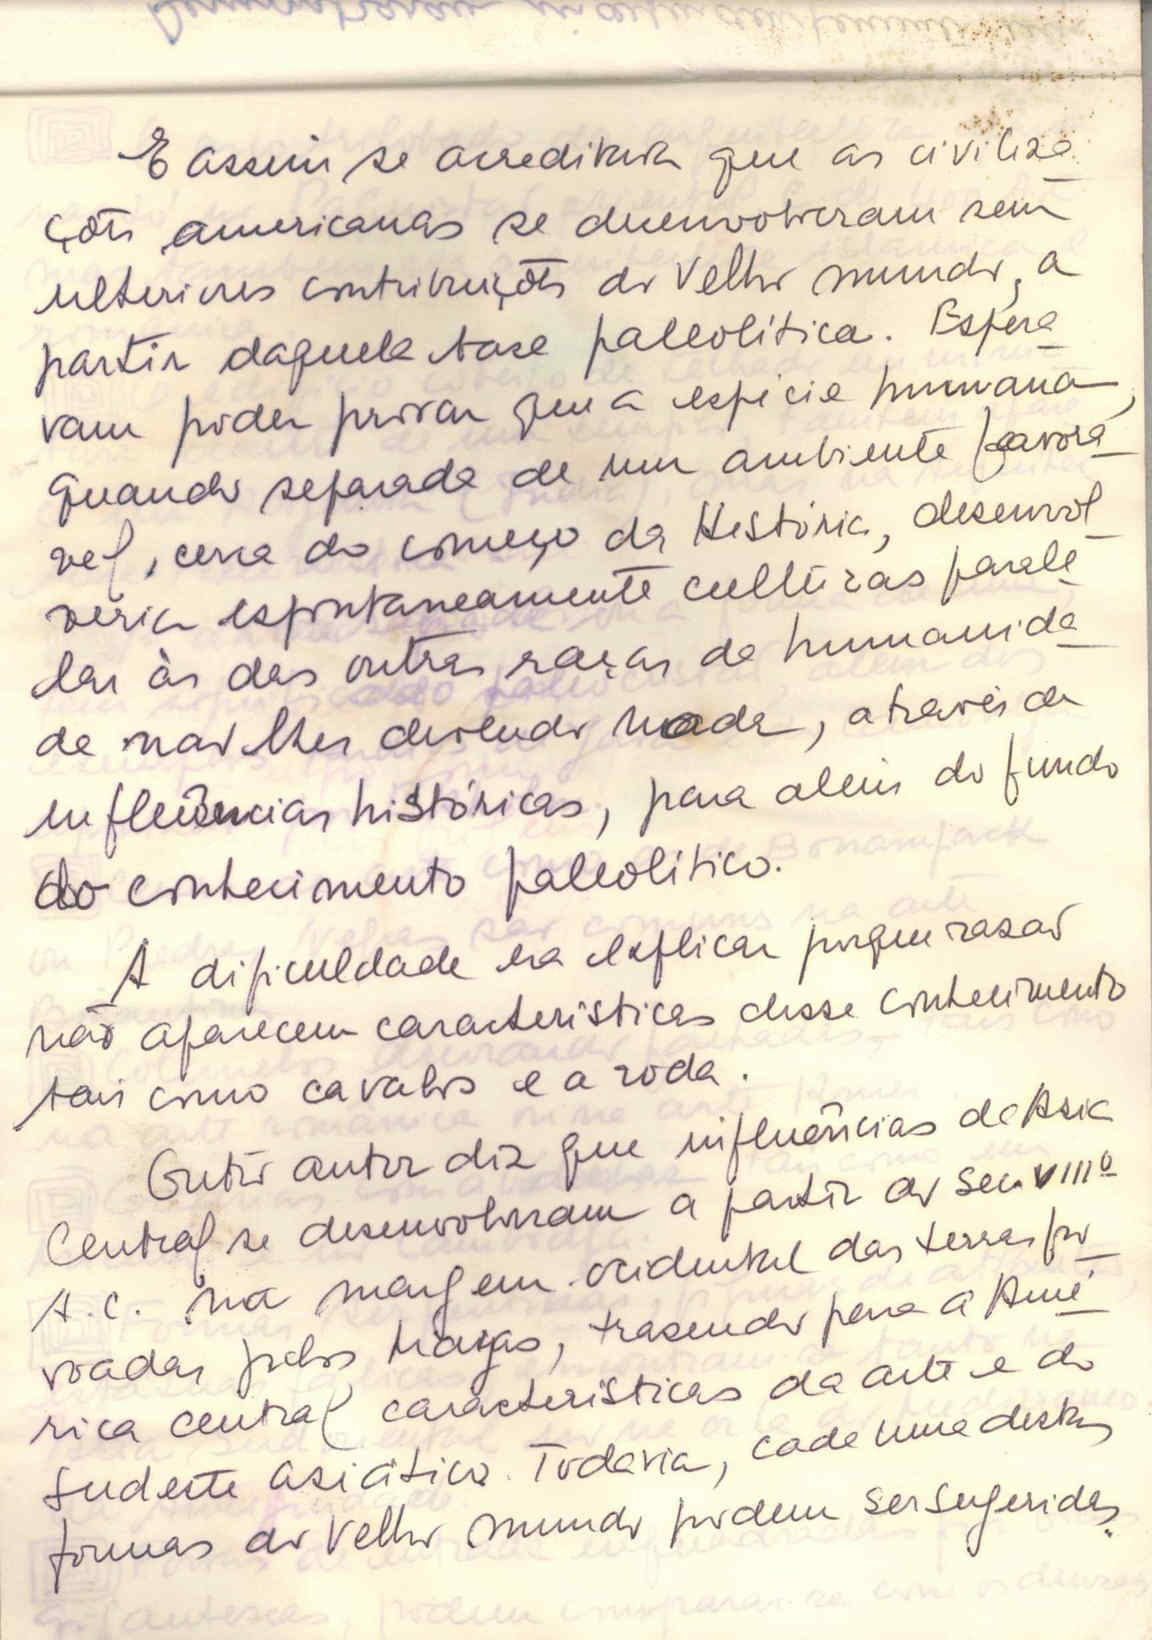 E assim se acreditava que as civiliza
ções americanas se desenvolveram sem
ulteriores contribuições do Velho mundo, a
partir daquela base paleolítica. Espera
vam poder provar que a espécie humana,
quando separada de um ambiente favorá
vel, cerca do começo da História, desenvol
veria espontaneamente culturas parale
las às das outras raças da humanida
de não lhes devendo nada, através de
influências históricas, para além do fundo
do conhecimento paleolítico.
A dificuldade era explicar porque razão
não aparecem características desse conhecimento
tais como cavalos e a roda.
Outro autor diz que influências da Asia
Central se desenvolveram a partir do Sec. VIIIº
A.C. na margem ocidental das terras po
voadas pelos Mayas, trasendo para a Amé
rica central características da arte e do
Sudeste asiático. Todavia, cada uma destas
formas do Velho mundo podem ser sugeridas.